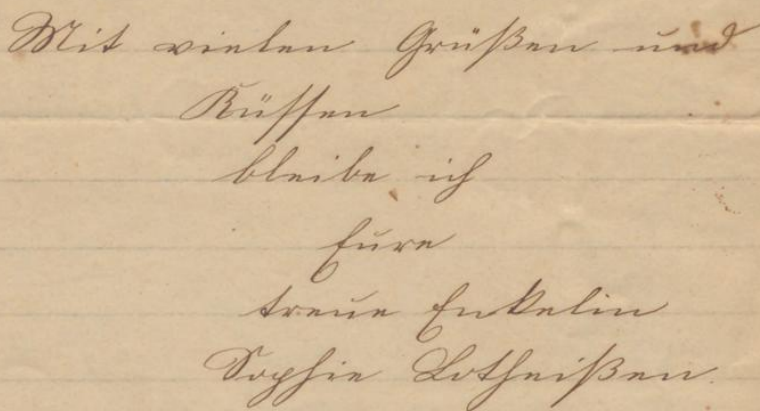 Mit vielen Grüßen und
Küssen
bleibe ich
Eure
treue Enkelin
Sophie Lotheißen.